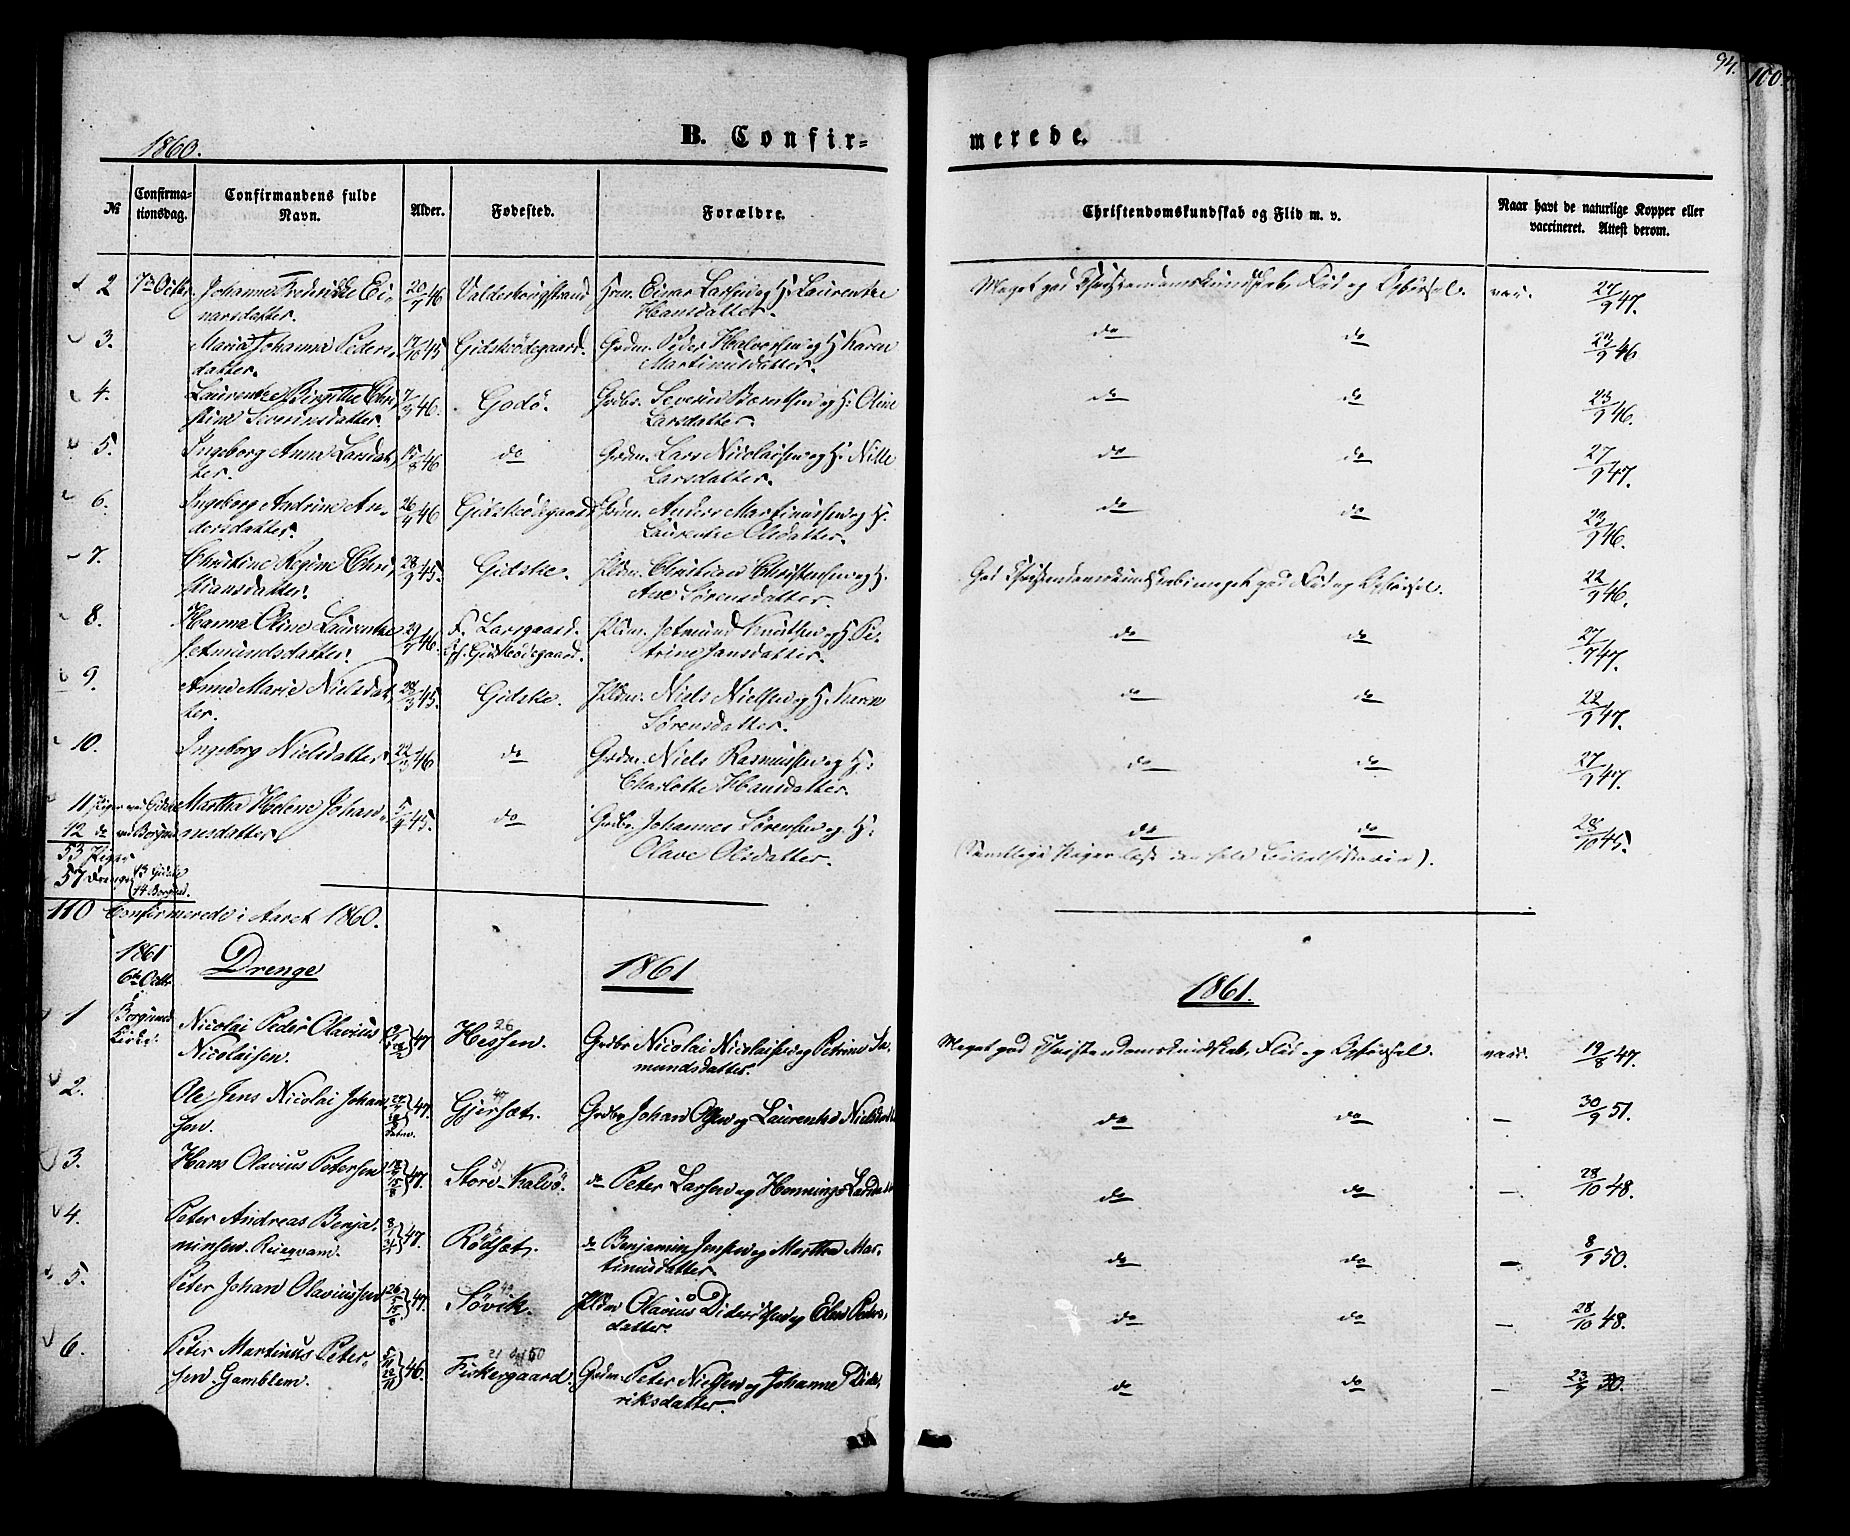 94.
100.
1860.
B. Confir=
merede.
№
Confirma=
tionsdag.
Confirmandens fulde
Navn.
Alder.
Fødested.
Forældre.
Christendomskundskab og Flid m. v.
Naar havt de naturlige Kopper eller
vaccineret. Attest derom.
2 7de Octbr. Johanne Fredrikke Ei-
narsdatter. 20/9 46 Valderhougstrand Einar Larsen og H. Laurentse
Hansdatter. Meget god Christendomskundskab, Flid og Opførsel. vacc. 27/9 47.
3. Maria Johanna Peders-
datter. 17/10 45 Gidskødegaard. Grdm. Peder Halvorsen og H. Karen
Martinusdatter. do do 23/9 46
4. Laurentse Birgithe Chri-
stine Severinsdatter. 46. Godö. Grdbr. Severin Berntsen og H. Oline
Larsdatter. do do 23/9 46.
5. Ingeborg Anna Larsdat-
ter. 15/8 46 do Grdm. Lars Nicolaisen og H. Nille
Larsdatter. do do 27/9 47.
6. Ingeborg Andrine An-
dersdatter. 26/9 46 Gidskødegaard Grdm. Anders Martinussen og H.
Laurentse Olsdatter. do do 23/9 46.
7. Christine Regine Chri-
stiansdatter. 28/9 45. Gidske. Pldm. Christian Christensen og H.
Ane Sørensdatter. God Christendomskundskab, meget god Flid og Opførsel. 22/9 46.
8. Hanna Oline Laurentse
Jetmundsdatter. 46. F. Larsgaard.
Gidskødegaard. Pldm. Jetmund Knutsen og H. Pe-
trine Jansdatter. do do 27/9 47.
9. Anne Marie Nielsdat-
ter. 28/3 45. Gidske. Pldm. Niels Nielsen og H. Karen
Sørensdatter. do do 22/9 47.
10. Ingeborg Nielsdatter 22/3 46 do Grdm. Niels Rasmussen og H.
Charlotte Hansdatter. do do 27/9 47.
11 Piger ved Gidske Martha Helene Johan-
nesdatter 45. do Grdbr. Johannes Sørensen og H.
Olave Olsdatter. do do 28/10 45.
42 do ved Borgund
53 Piger
57 Drenge 43 Gidske
14 Borgund.
110 Confirmerede i Aaret 1860.
1861
6te Octbr.
i
Borgund
Kirke.
Drenge
1861
1861.
1 Nicolai Peder Olavius
Nicolaisen. 47 26
Hessen. Grdbr Nicolai Nicolaisen og Petrine
mundsdatter. Meget god Christendomskundskab, Flid og Opførsel. vacc. 19/8 47.
2. Ole Jens Nicolai Johan-
sen. 47. Gjersæt. Grdbr Johan Olsen og Laurentse Nielsdatter do do — 30/9 51.
3. Hans Olavius Petersen 47. 51
Store-Kalvö. do Peter Larsen og Larsdatter do do — 28/10 48.
4. Peter Andreas Benja-
minsen. 47. Rödsæt. do Benjamin Jensen og Martha Mar-
tinusdatter do do — 8/9 50.
5. Peter Johan Olaviussen 47. Søvik. Pldm Olavius Didriksen og Elen Peders-
datter. do do — 28/10 48.
6. Peter Martinus Peter-
sen. Gamblem. 46. Fiskergaard. Grdm Peter Nielsen og Johanne Did-
riksdatter. do do — 23/9 50.